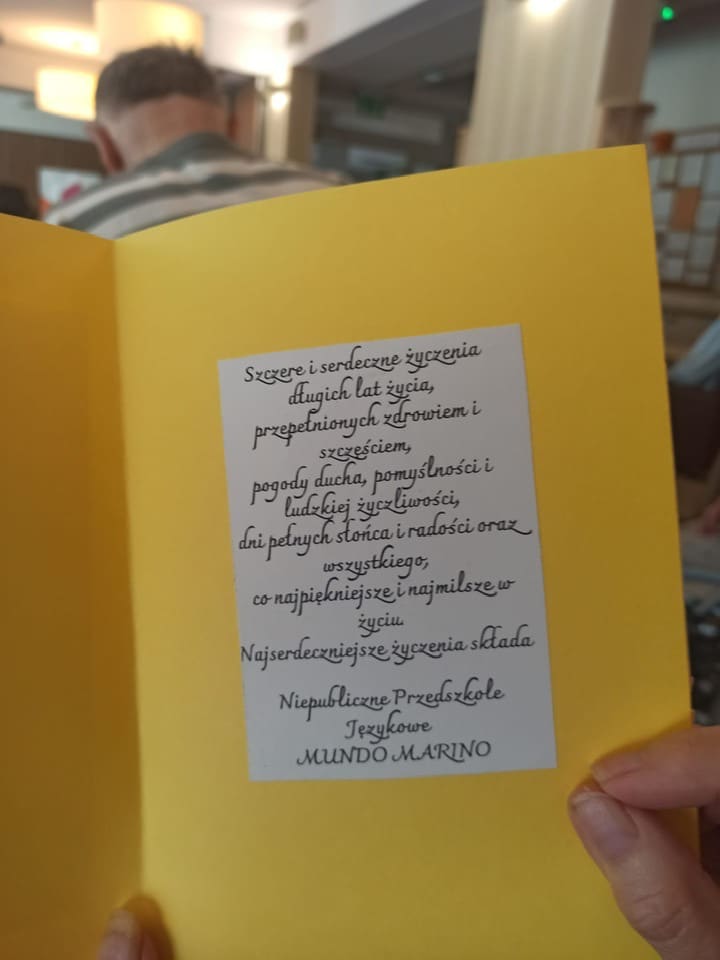 Szczere i serdeczne życzenia
długich lat życia,
przepełnionych zdrowiem i
szczęściem,
pogody ducha, pomyślności i
ludzkiej życzliwości,
dni pełnych słońca i radości oraz
wszystkiego,
co najpiękniejsze i najmilsze w
życiu.
Najserdeczniejsze życzenia składa
Niepubliczne Przedszkole
Językowe
MUNDO MARINO